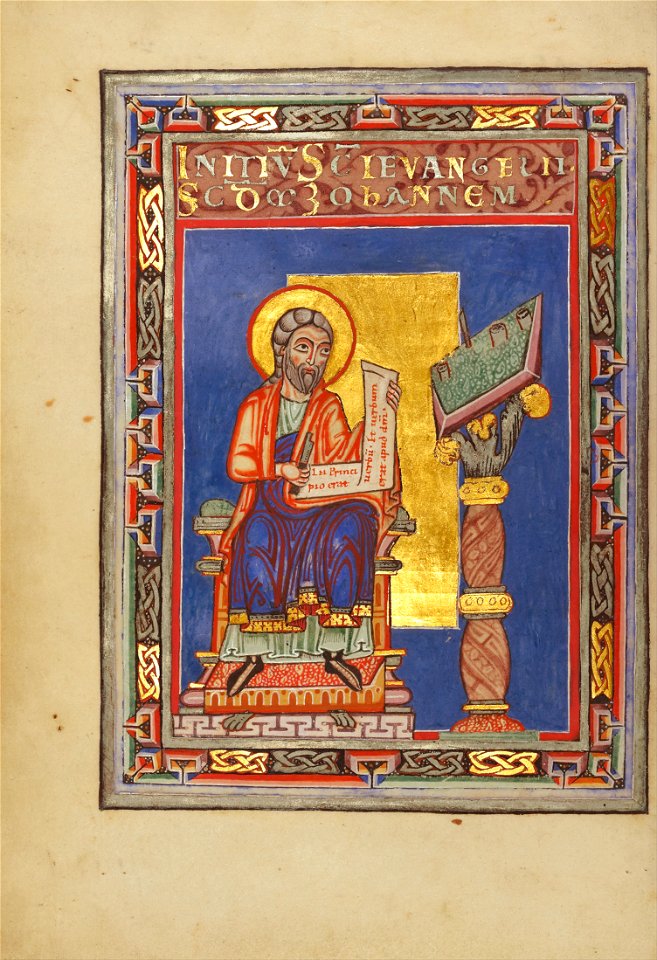 INITIŪ SC̄I EVANGELII
SCD̄M IOHANNEM
In Princi
pio erat
uerbū· Et uerbum
erat apud dm̄·